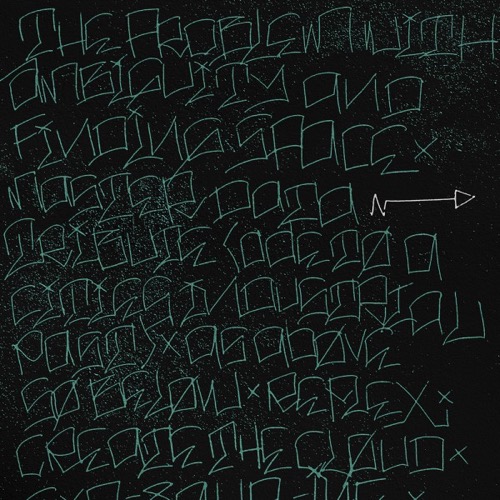 THE PROBLEM WITH
AMBIGUITY AND
FINDING SPACE ×
MASTER DATA
TRIBUTE
CITIES INDUSTRIAL
PAST × AS ABOVE
SO BELOW × REPEX ×
CREATE THE CLOUD ×